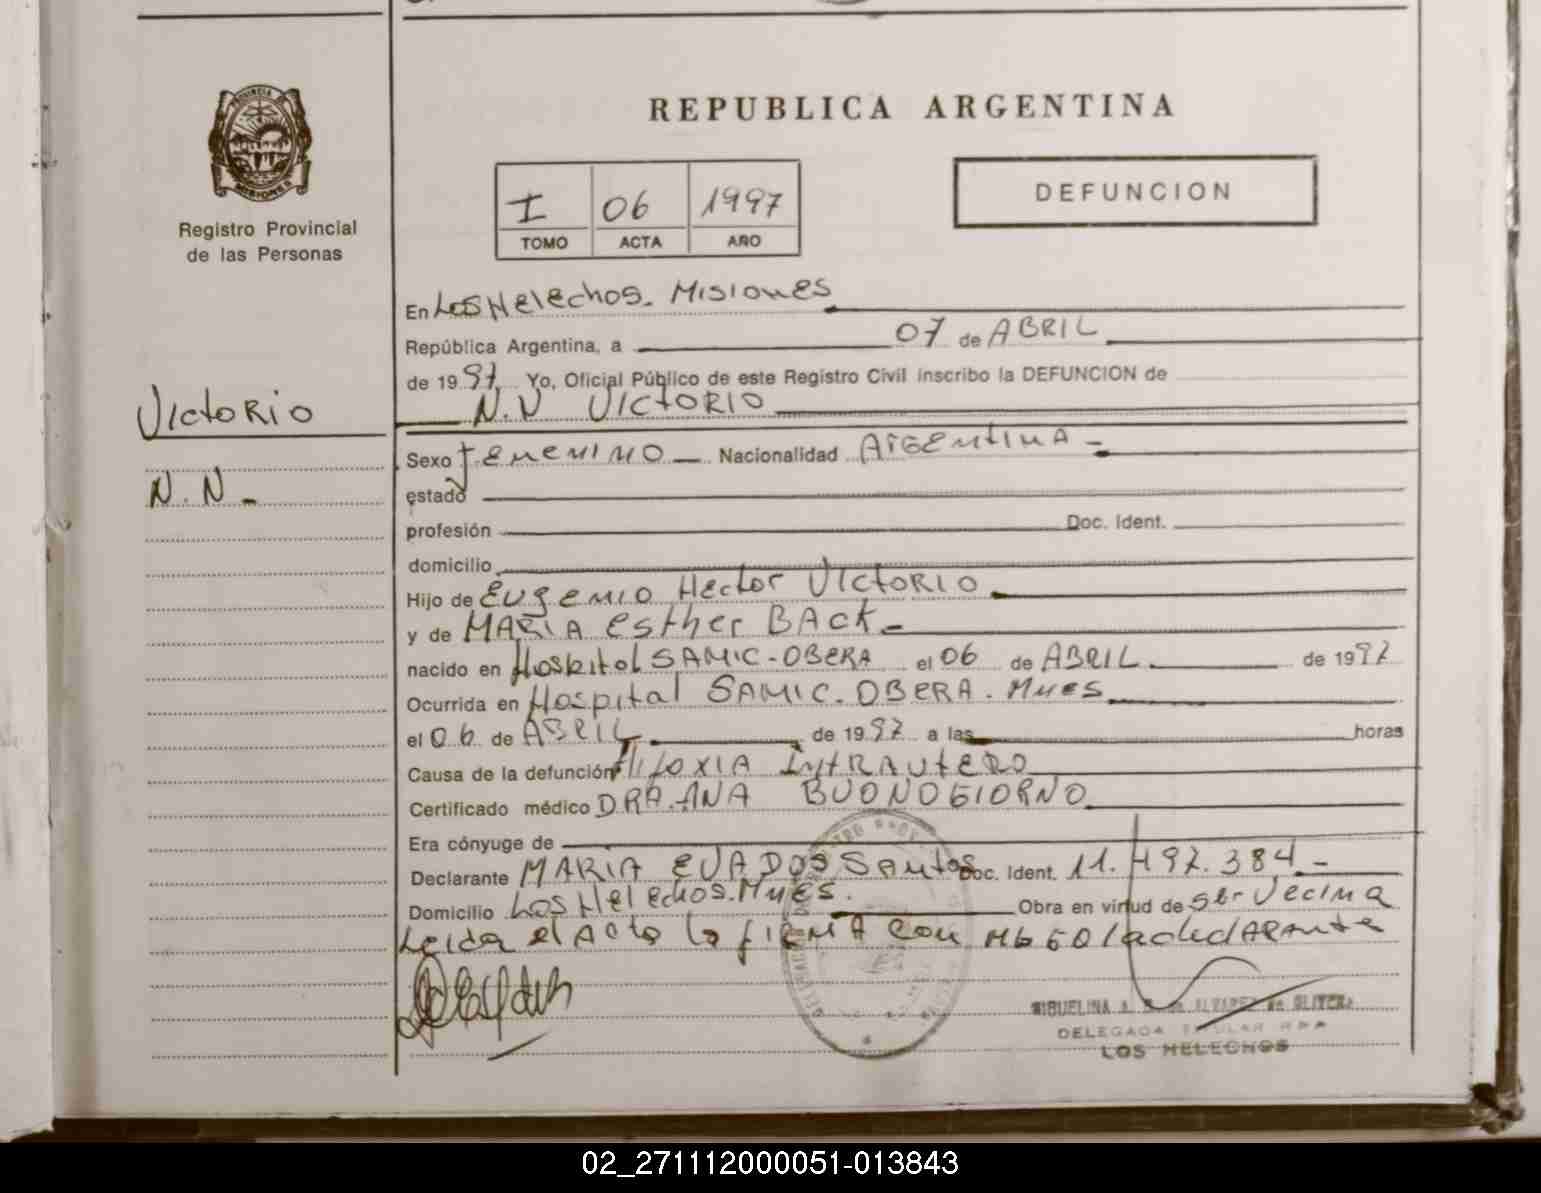 REPUBLICA ARGENTINA
PROVINCIA
MISIONES
Registro Provincial
de las Personas
I 06 1997
TOMO ACTA AÑO
DEFUNCION
En Los Helechos. Misiones
República Argentina, a 07 de ABRIL
de 1997 Yo, Oficial Público de este Registro Civil inscribo la DEFUNCION de
N.N VICTORIO
Victorio
N.N.-
Sexo femenino Nacionalidad Argentina -
estado
profesión Doc. Ident.
domicilio
Hijo de Eugenio Hector Victorio
y de MARIA Esther BACK -
nacido en Hospital SAMIC-OBERA el 06 de ABRIL de 1997
Ocurrida en Hospital SAMIC-OBERA. Mnes
el 06 de ABRIL de 1997 a las horas
Causa de la defunción Hipoxia Intrautero
Certificado médico DRA. ANA BUONOGIORNO
Era cónyuge de
Declarante MARIA EVA DOS Santos Doc. Ident. 11.497.384 -
Domicilio Los Helechos. Mnes. Obra en virtud de ser vecina
Leida el Acta la firma con migo la declarante
DELEGADA TITULAR RPP
LOS HELECHOS
02_271112000051-013843